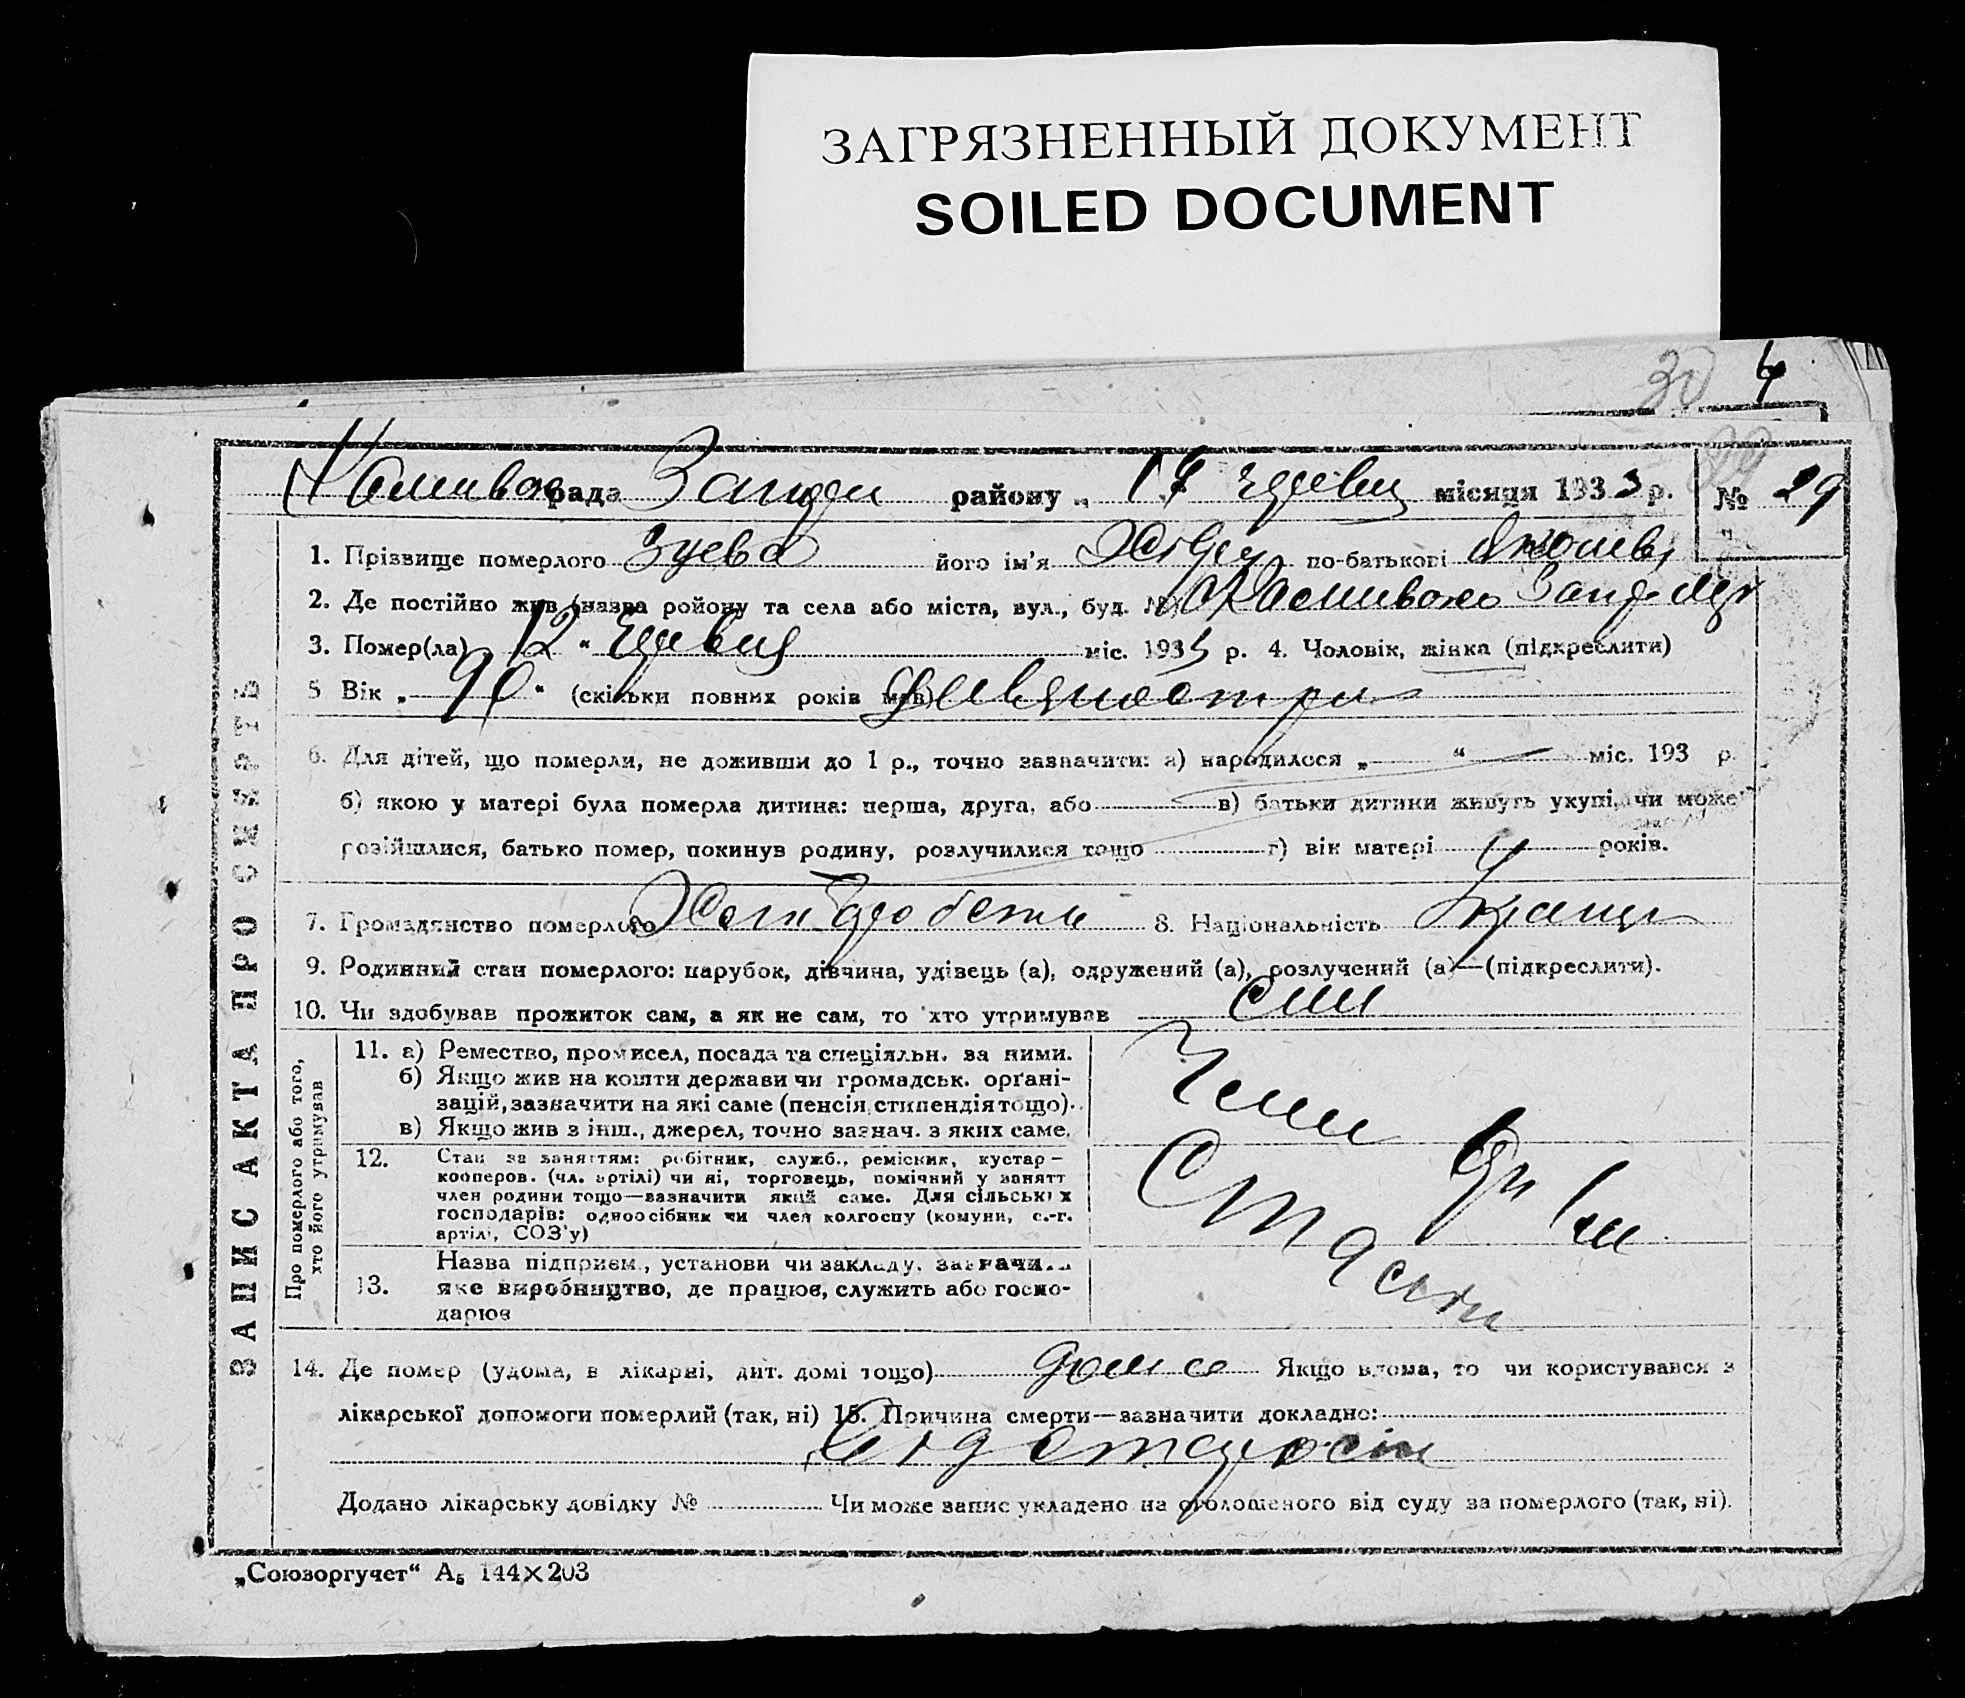 ЗАГРЯЗНЕННЫЙ ДОКУМЕНТ
SOILED DOCUMENT
30 4
рада району „ 17 місяця 1933 р. № 29
1. Прізвище померлого Зуева його ім'я по-батькові
2. Де постійно жив (назва району та села або міста, вул., буд. №
3. Помер(ла) 12 “ червця міс. 1933 р. 4. Чоловік, жінка (підкреслити)
5 Вік „ 90 “ (скільки повних років мав) девяносто
6. Для дітей, що померли, не доживши до 1 р., точно зазначити: а) народилося „ “ міс. 193 р.
б) якою у матері була померла дитина: перша, друга, або в) батьки дитини живуть укупі, чи може
розійшлися, батько помер, покинув родину, розлучилися тощо г) вік матері років.
7. Громадянство померлого 8. Національність Украин
9. Родинний стан померлого: парубок, дівчина, удівець (а), одружений (а), розлучений (а)—(підкреслити).
10. Чи здобував прожиток сам, а як не сам, то хто утримував син
ЗАПИС АКТА ПРО СМЕРТЬ
Про померлого або того, хто його утримував
11. а) Ремество, промисел, посада та спеціяльн. за ними.
б) Якщо жив на кошти держави чи громадськ. орґані-
зацій, зазначити на які саме (пенсія, стипендія тощо).
в) Якщо жив з інш., джерел, точно зазнач. з яких саме.
12. Стан за заняттям: робітник, служб., реміскик, кустар—
кооперов. (чл. артілі) чи ні, торговець, помічний у занятт
член родини тощо—зазначити який саме. Для сільських
господарів: одноосібник чи член колгоспу (комуни, с.-г.
артілі, СОЗ'у)
13. Назва підприєм., установи чи закладу, зазначити
яке виробництво, де працює, служить або госпо-
дарює
14. Де помер (удома, в лікарні, дит. домі тощо) дома Якщо вдома, то чи користувався з
лікарської допомоги померлий (так, ні) 15. Причина смерти—зазначити докладно:
від старости
Додано лікарську довідку № Чи може запис укладено на оголошеного від суду за померлого (так, ні).
„Союзоргучет“ А₅ 144×203